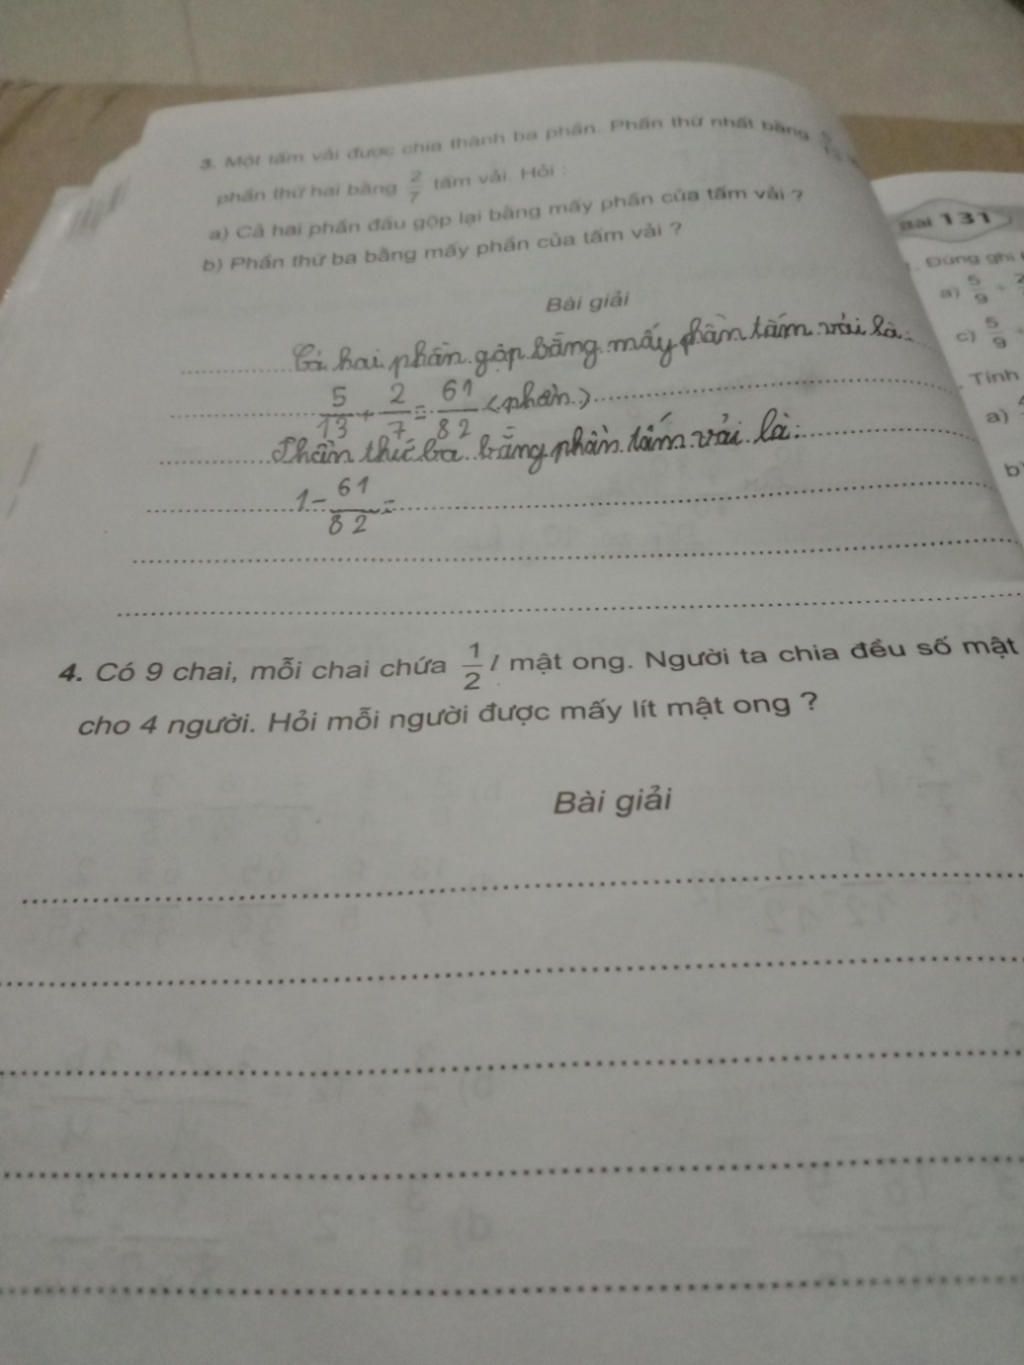 3. Một tấm vải được chia thành ba phần. Phần thứ nhất bằng
phần thứ hai bằng 2/7 tấm vải. Hỏi :
a) Cả hai phần đầu gộp lại bằng mấy phần của tấm vải ?
b) Phần thứ ba bằng mấy phần của tấm vải ?
Bài giải
Cả hai phần gộp bằng mấy phần tấm vải là:
5/13 + 2/7 = 61/82 (phần)
Phần thứ ba bằng phần tấm vải là:
1 - 61/82 =
4. Có 9 chai, mỗi chai chứa 1/2 l mật ong. Người ta chia đều số mật
cho 4 người. Hỏi mỗi người được mấy lít mật ong ?
Bài giải
Bài 131
. Đúng ghi
a) 5/9
c) 5/9
. Tính
a)
b)